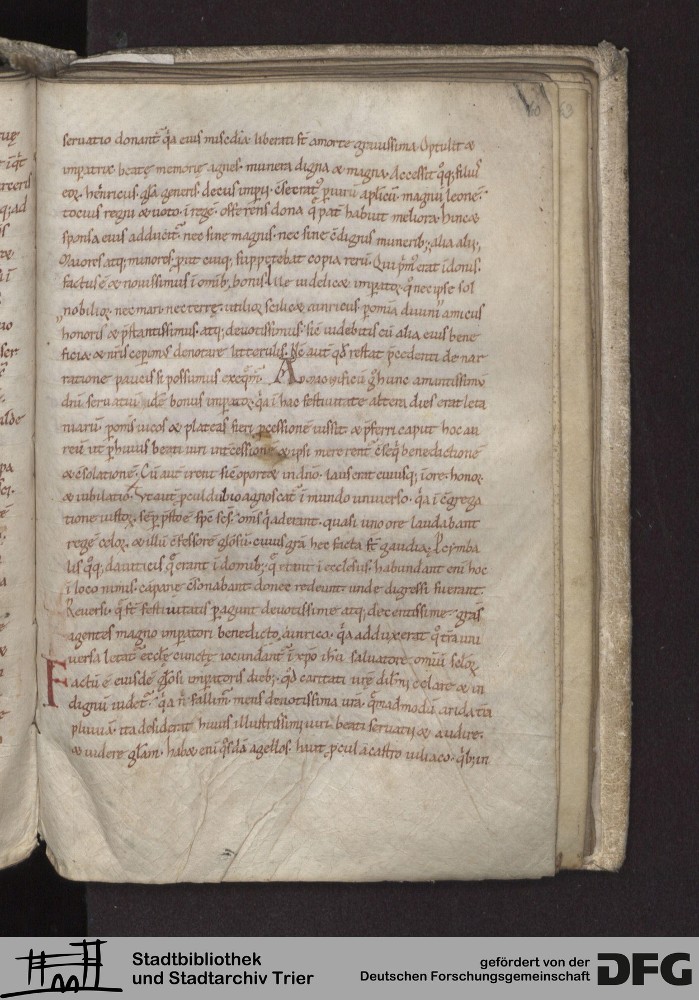 60
seruatio donant᷑ q̇a eius mis̄cdia liberati st̄ amorte grauissima. Optulit &
imp̄atrix beatę memorię agnes. munera digna & magna. Accessit q̊q; filius
eoꝝ henricus. glā generis. decus imp̄ij.
tocius regni deuoto. ī regē. offerens dona q̄ pat̄ habuit meliora. hinc &
sponsa eius adducit᷑. nec sine magnis. nec sine c̄dignis munerib; alia alij,
Maiores atq; minores. p̄ut cuiq; suppetebat copia rerū. Qui p̄m̄ erat ī donis.
factus ē & nouissimus ī omib; bonis. Ille uidelic& imp̄ator q̊ nec ipse sol
nobilior. nec mari nec terrę utilior. scilic& aunricus. p̄ omnia diuini amicus
honoris & p̄stantissimus. atq; deuotissimus. sic̄ uidebitis cū alia eius bene
ficia & nr̄is cepimus denotare litterulis. Nc̄ aut̄ q̊d restat p̄cedenti de nar
ratione paucis si possumus exeq̄m᷑. Ad magnificū g̊ hunc amantissimū
dn̄i seruatiū idē bonus imp̄ator. q̇a ī hac festiuitate altera dies erat leta
niarū. p̄ om̄s uicos & plateas fieri p̄cessionē iussit. & p̄ferri caput hoc au
reū. ut p̄ huius beati uiri int̄cessionē & ipsi mererent᷑ c̄seq̇ benedictionē
& c̄solationē. Cū aut̄ irent sic̄ oport& in dn̄o. laus erat cuiusq; ī ore. honor
& iubilatio. Vt aut̄ p̄cul dubio agnoscat᷑ ī mundo uniuerso. q̇a ī c̄grega
tione iustoꝝ. sēp p̄sto ē sp̄c sc̄s. om̄s q̇ aderant. quasi uno ore laudabant
regē celoꝝ. & illū c̄fessorē gl̄osū. cuius gr̄a hec facta st̄ gaudia. Pcȳmba
lis q̊q; dauiticis q̄ erant ī domib; q̄ stant ī ecclesiis. habundant enī hoc
ī loco nimis. cāpanę c̄sonabant. donec redeunt. unde digressi fuerant.
Reuersi. q̄ st̄ festiuitatis p̄agunt deuotissime atq; decentissime. gr̄as
agentes magno imp̄atori benedicto. aunrico. q̇a adduxerat q̊ t̄ra uni
uersa letat᷑. ecclę cunctę iocundant᷑ ī xp̄o ih̄u saluatore omniū scl̄oꝝ.
Factū ē eiusdē gl̄osi imp̄atoris dieb; q̊d caritati urę dilm̄i celare & in
dignū uidet᷑. q̇a n̄ fallim᷑ mens deuotissima ur̄a. q̄madmodū arida t̄ra
pluuiā. ita desiderat huius illustrissimi uiri beati seruatij & audire.
& uidere gl̄am. habet enī q̊sdā agellos. haut p̄cul a castro iuliaco. q̇b; in
Stadtbibliothek
und Stadtarchiv Trier
gefördert von der
Deutschen Forschungsgemeinschaft
DFG